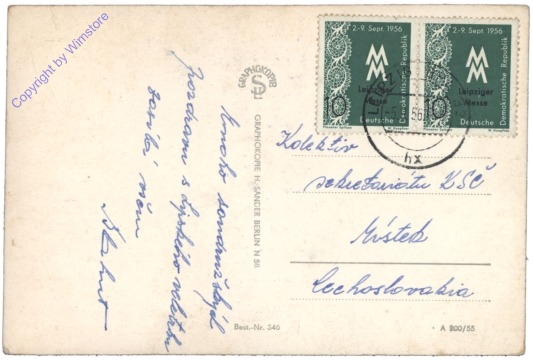 Copyright by Wimstore
Mnoho soudružských
pozdravů s Lipského veletrhu
zasílá všem
GRAPHOKOPIE
GRAPHOKOPIE H. SANDER BERLIN N 58
Best.-Nr. 346
2.-9. Sept. 1956
Leipziger
Messe
10
Deutsche
Demokratische Republik
2.-9. Sept. 1956
Leipziger
Messe
10
Deutsche
Demokratische Republik
hx
Kolektiv
sekretariátu KSČ
Místek
Čechoslovakia
A 200/55